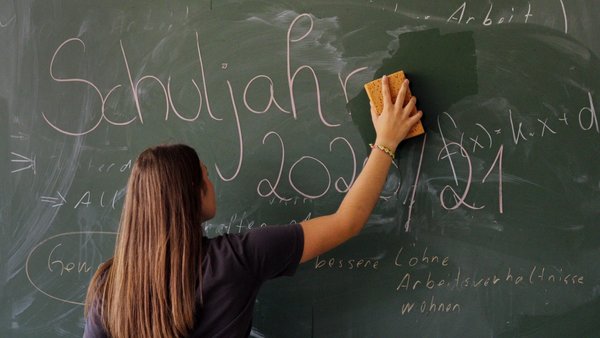 Arbeit
Schuljahr
f(x) = k · x + d
2020/21
bessere Löhne
Arbeitsverhältnisse
wohnen